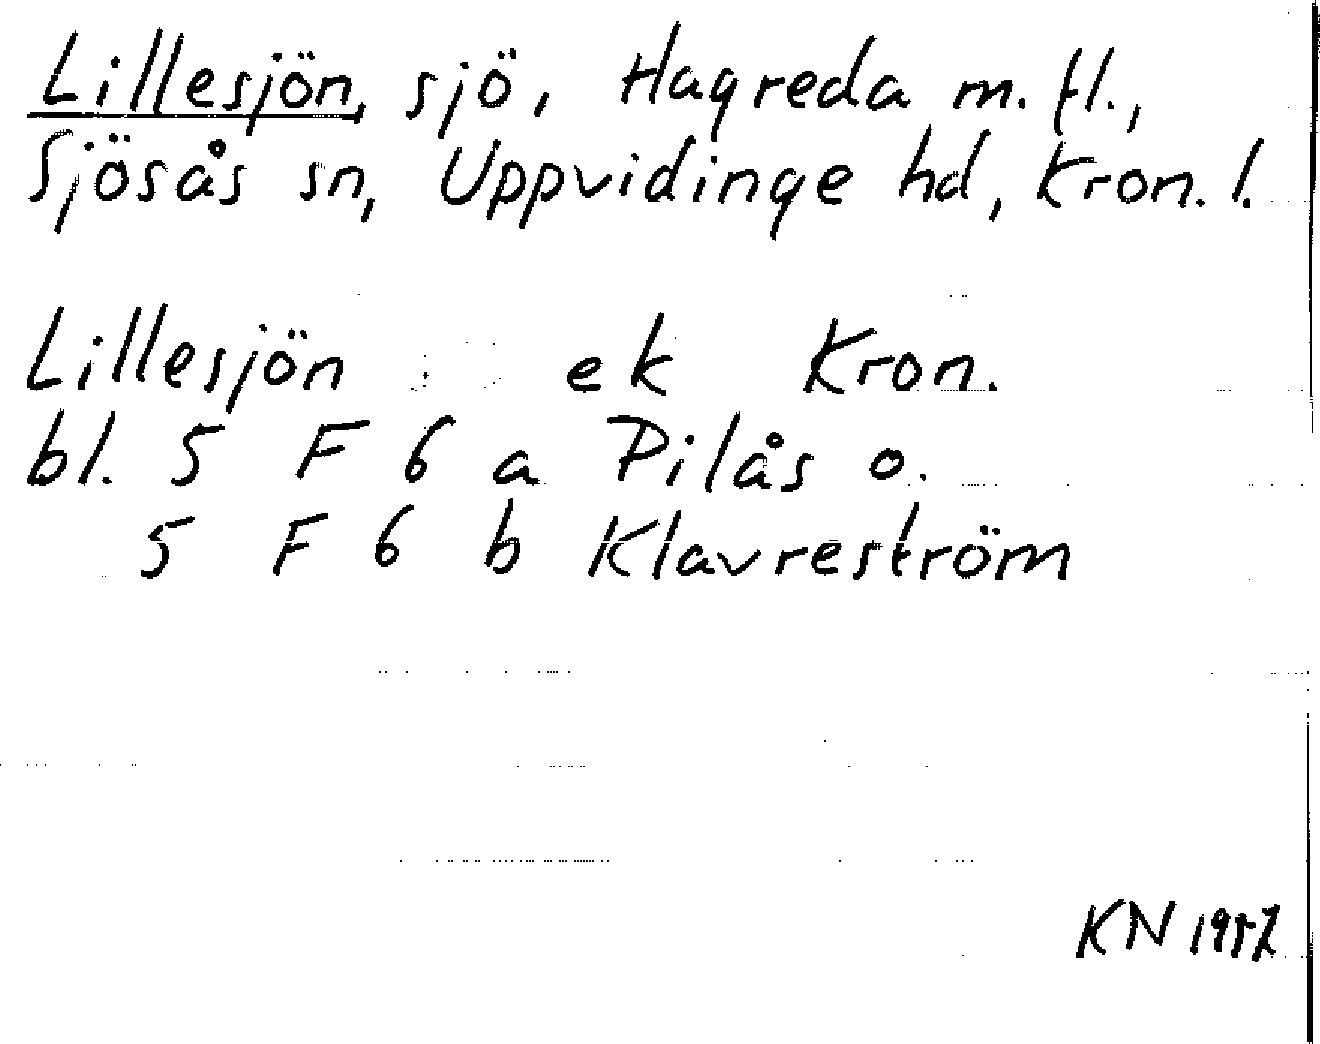 Lillesjön, sjö, Hagreda m. fl.,
Sjösås sn, Uppvidinge hd, Kron. l.
Lillesjön ek Kron.
bl. 5 F 6 a Pilås o.
5 F 6 b Klavreström
KN